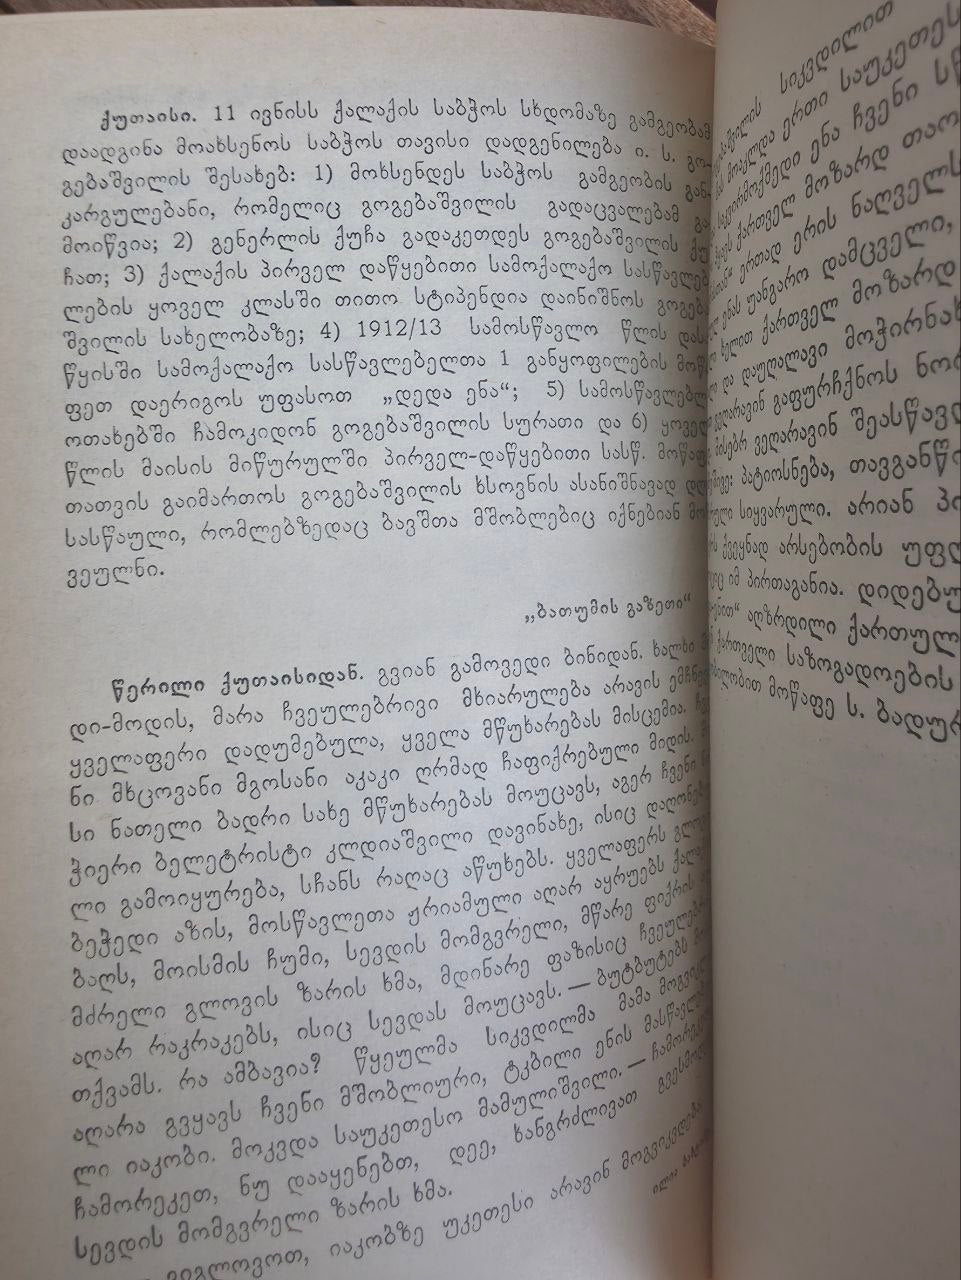 ქუთაისი. 11 ივნისს ქალაქის საბჭოს სხდომაზე გამგეობამ
დაადგინა მოახსენოს საბჭოს თავისი დადგენილება ი. ს. გო-
გებაშვილის შესახებ: 1) მოხსენდეს საბჭოს გამგეობის გან-
კარგულებანი, რომელიც გოგებაშვილის გადაცვალებამ გა-
მოიწვია; 2) გენერლის ქუჩა გადაკეთდეს გოგებაშვილის ქუ-
ჩათ; 3) ქალაქის პირველ დაწყებითი სამოქალაქო სასწავლებ-
ლების ყოველ კლასში თითო სტიპენდია დაინიშნოს გოგება-
შვილის სახელობაზე; 4) 1912/13 სამოსწავლო წლის დას-
წყისში სამოქალაქო სასწავლებელთა 1 განყოფილების მოწა-
ფეთ დაერიგოს უფასოთ „დედა ენა“; 5) სამოსწავლებლო
ოთახებში ჩამოკიდონ გოგებაშვილის სურათი და 6) ყოველ
წლის მაისის მიწურულში პირველ-დაწყებითი სასწ. მოწაფე-
თათვის გაიმართოს გოგებაშვილის ხსოვნის ასანიშნავად დღე-
სასწაული, რომლებზედაც ბავშთა მშობლებიც იქნებიან მოწ-
ვეულნი.
„ბათუმის გაზეთი“
წერილი ქუთაისიდან. გვიან გამოვედი ბინიდან. ხალხი
დი-მოდის, მარა ჩვეულებრივი მხიარულება არავის ემჩნევა
ყველაფერი დადუმებულა, ყველა მწუხარებას მისცემია.
ნი მხცოვანი მგოსანი აკაკი ღრმად ჩაფიქრებული მიდის.
სი ნათელი ბადრი სახე მწუხარებას მოუცავს, აგერ ჩვენი
ჭიერი ბელეტრისტი კლდიაშვილი დავინახე, ისიც დაღონებუ-
ლი გამოიყურება, სჩანს რაღაც აწუხებს. ყველაფერს გლოვის
ბეჭედი აზის, მოსწავლეთა ჟრიამული აღარ აყრუებს ქალაქის
ბაღს, მოისმის ჩუმი, სევდის მომგვრელი, მწარე ფიქრის
მძრელი გლოვის ზარის ხმა, მდინარე ფაზისიც ჩვეულებრივ
აღარ რაკრაკებს, ისიც სევდას მოუცავს. — ბუტბუტებს
თქვამს. რა ამბავია? წყეულმა სიკვდილმა მამა მოგვიკლა
აღარა გვყავს ჩვენი მშობლიური, ტკბილი ენის მასწავლებე-
ლი იაკობი. მოკვდა საუკეთესო მამულიშვილი. — ჩამორეკეთ
ჩამორეკეთ, ნუ დააყენებთ, დეე, ხანგრძლივათ გვესმოდეს
სევდის მომგვრელი ზარის ხმა.
ვიგლოვოთ, იაკობზე უკეთესი არავინ მოგვიკვდება
სიკვდილით
მოაკლდა ერთი საუკეთეს
საგვირმოქმედი ენა ჩვენი
ქართველ მოზარდ თაო
ერთად ერის ნაღველს
ენას უანგარო დამცველი,
ხელით ქართველ მოზარდ
და დაუღალავი მოჭირნახ
ვეღარავინ გაფურჩქნოს ნორ
მისებრ ვეღარავინ შეასწავლ
პატიოსნება, თავგანწი
სიყვარული. არიან პი
ქვეყნად არსებობის უფლ
იმ პირთაგანია. დიდებუ
ენით“ აღზრდილი ქართულ
ქართველი საზოგადოების
მოწაფე ს. ბადურ